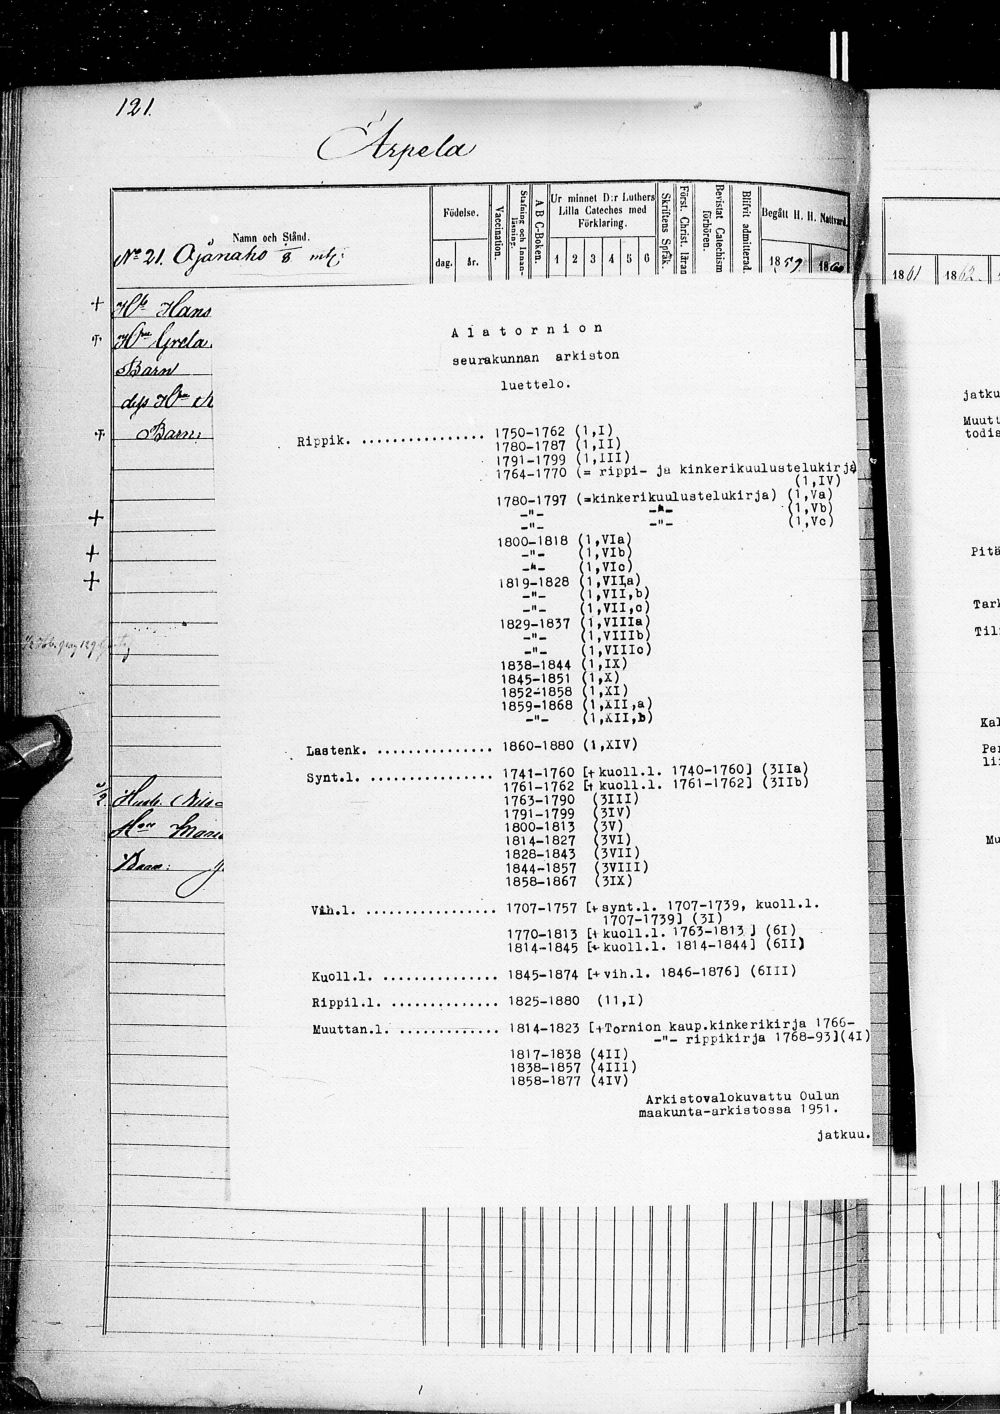 121.
Arpela
Namn och Stånd.
Födelse.
dag. år.
Vaccination.
Stafning och Innanläsning.
A B C-Boken.
Ur minnet D:r Luthers
Lilla Cateches med
Förklaring.
1 2 3 4 5 6
Skriftens Språk.
Först. Christ. läran
Bevistat Catechism
förhören.
Blifvit admitterad.
Begått H. H. Nattvard.
1859 1860
1861 1862
No 21. Ojänaho 1/8 mtl:
+ Hb Hans
+ Hru Greta
Barn
+ Barn:
+
+
+
Alatornion
seurakunnan arkiston
luettelo.
Rippik. ................ 1750-1762 (1,I)
1780-1787 (1,II)
1791-1799 (1,III)
1764-1770 (= rippi- ja kinkerikuulustelukirja)
(1,IV)
1780-1797 (=kinkerikuulustelukirja) (1,Va)
-"- -"- (1,Vb)
-"- -"- (1,Vc)
1800-1818 (1,VIa)
-"- (1,VIb)
-"- (1,VIc)
1819-1828 (1,VIIa)
-"- (1,VII,b)
-"- (1,VII,c)
1829-1837 (1,VIIIa)
-"- (1,VIIIb)
-"- (1,VIIIc)
1838-1844 (1,IX)
1845-1851 (1,X)
1852-1858 (1,XI)
1859-1868 (1,XII,a)
-"- (1,XII,b)
Lastenk. ............... 1860-1880 (1,XIV)
Synt.l. ................ 1741-1760 [+ kuoll.l. 1740-1760] (3IIa)
1761-1762 [+ kuoll.l. 1761-1762] (3IIb)
1763-1790 (3III)
1791-1799 (3IV)
1800-1813 (3V)
1814-1827 (3VI)
1828-1843 (3VII)
1844-1857 (3VIII)
1858-1867 (3IX)
Vih.l. ................. 1707-1757 [+ synt.l. 1707-1739, kuoll.l.
1707-1739] (3I)
1770-1813 [+ kuoll.l. 1763-1813] (6I)
1814-1845 [+ kuoll.l. 1814-1844] (6II)
Kuoll.l. ............... 1845-1874 [+ vih.l. 1846-1876] (6III)
Rippil.l. .............. 1825-1880 (11,I)
Muuttan.l. ............. 1814-1823 [+Tornion kaup.kinkerikirja 1766-
-"- rippikirja 1768-93](4I)
1817-1838 (4II)
1838-1857 (4III)
1858-1877 (4IV)
Arkistovalokuvattu Oulun
maakunta-arkistossa 1951.
jatkuu.
Barn:
jatku
Muutt
todis
Pitä
Tark
Til
Kal
Per
lii
Mu